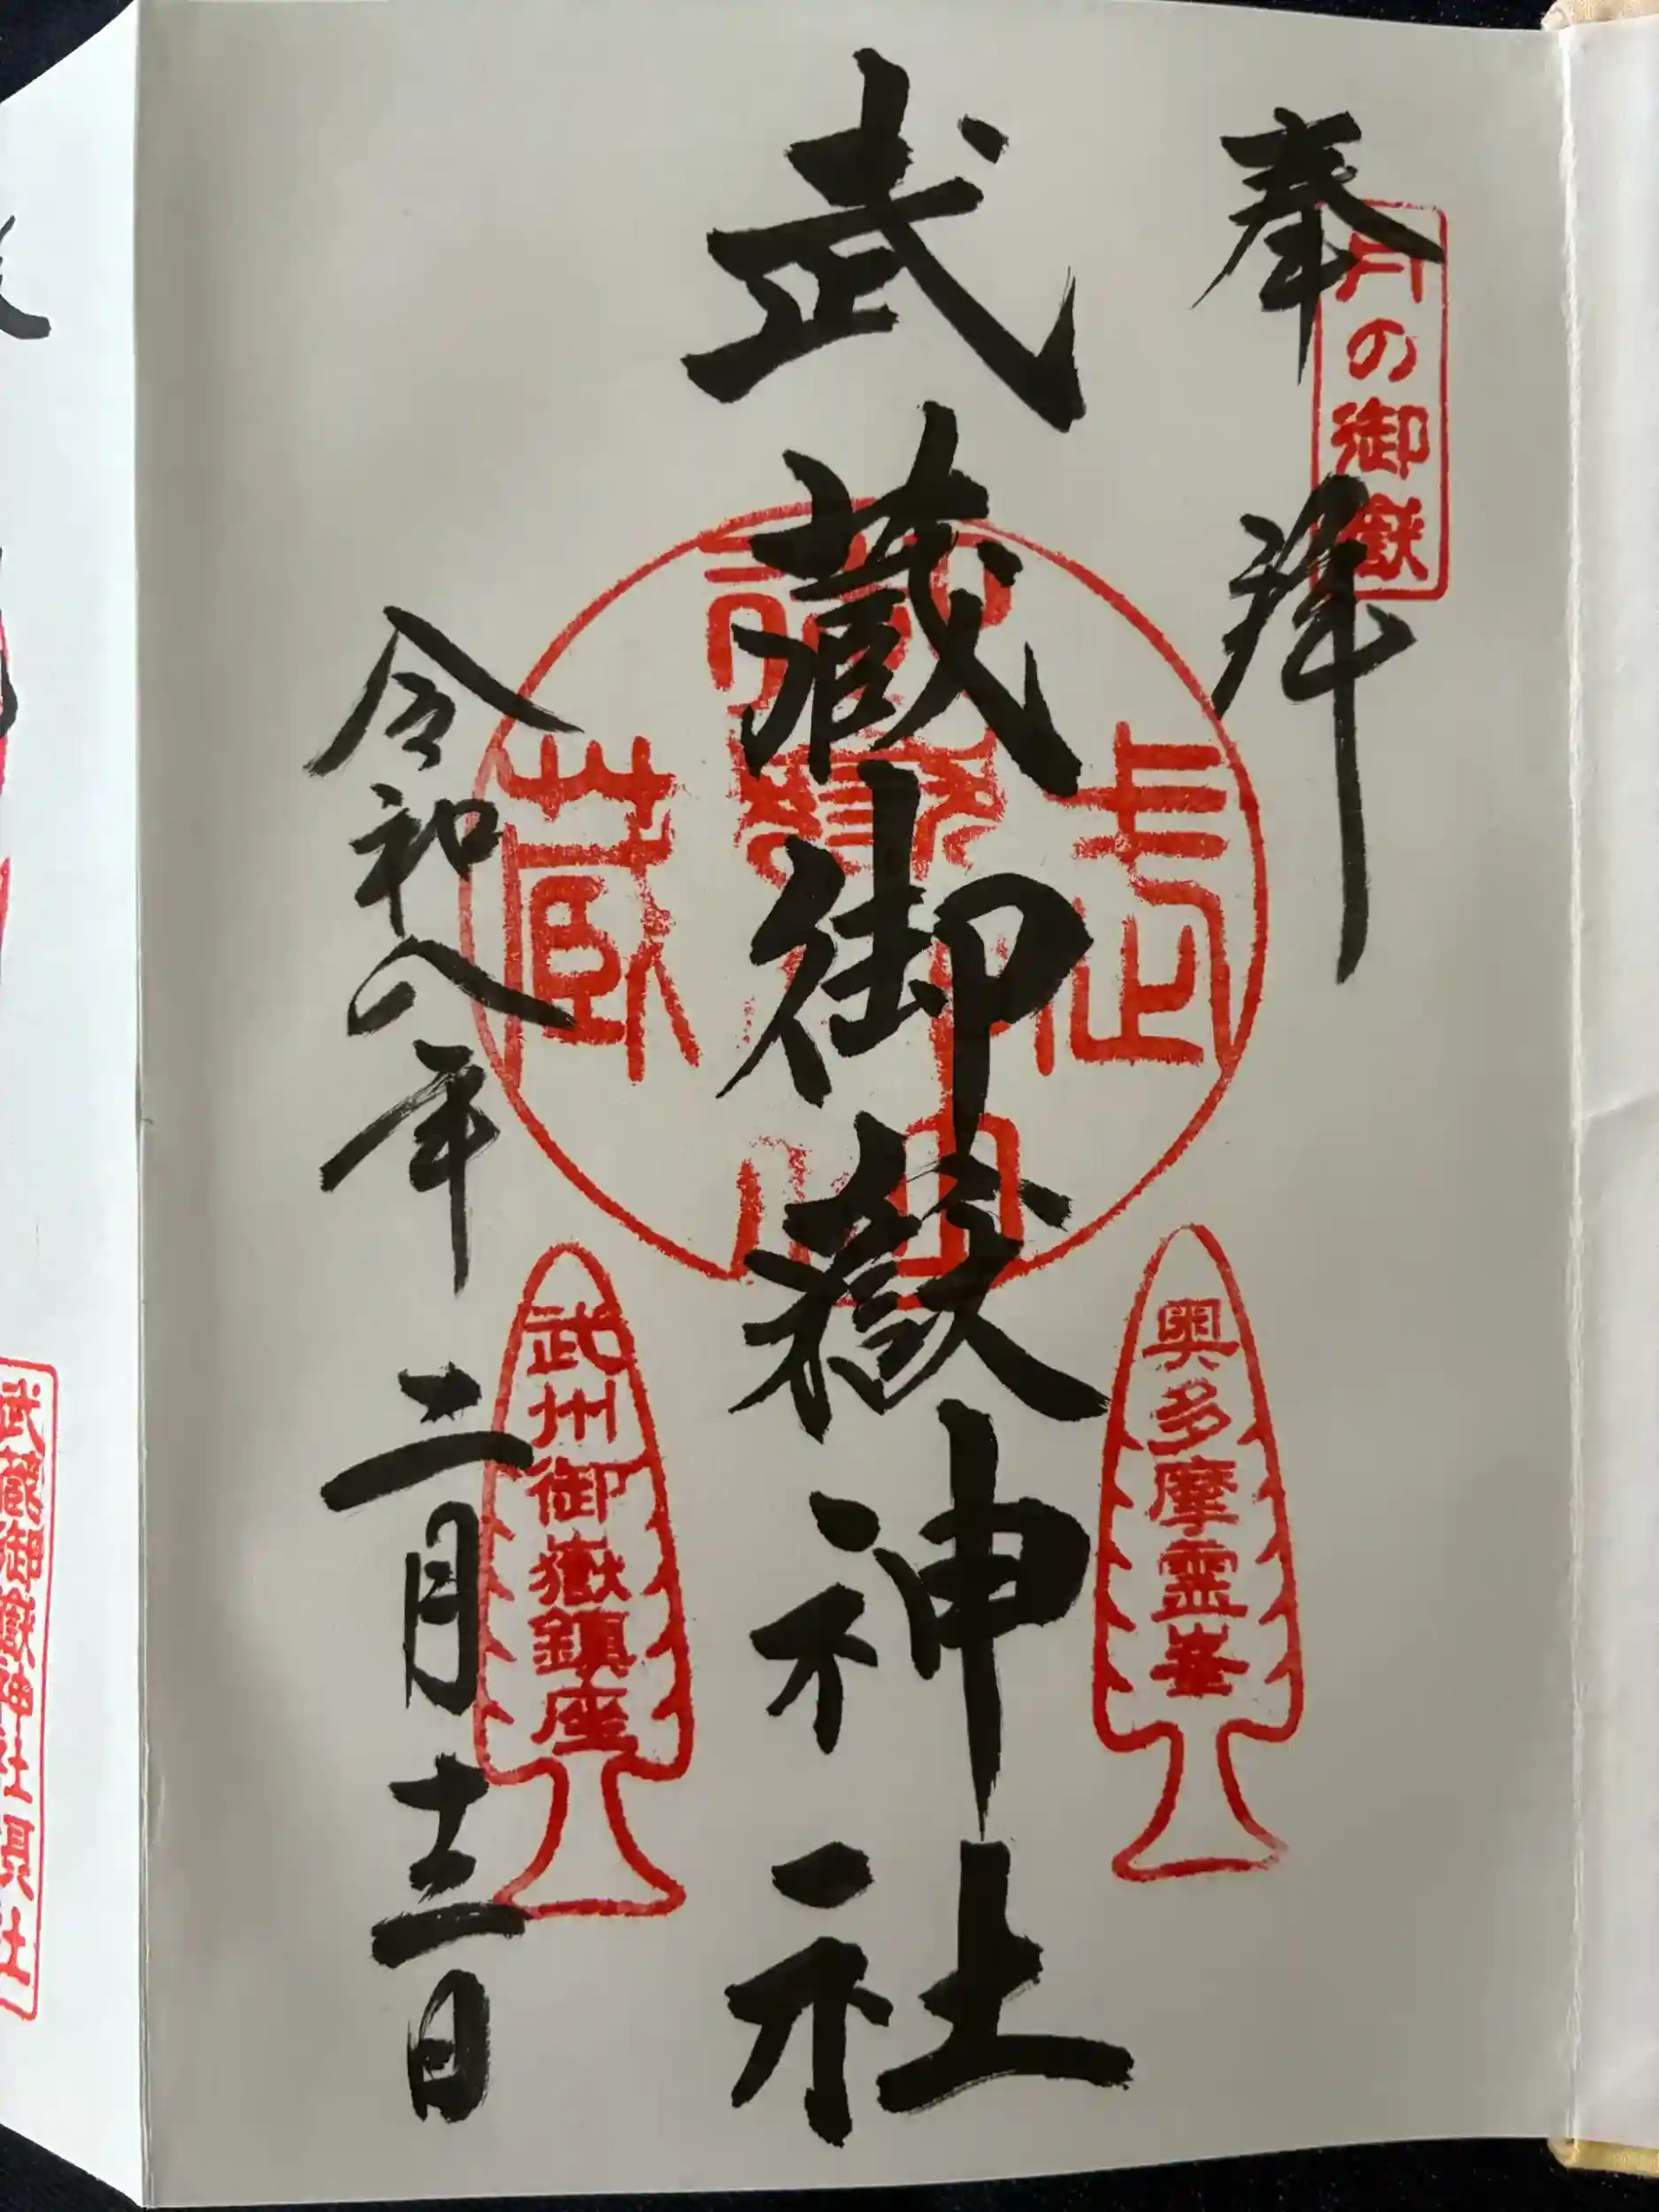 奉拝
月の御嶽
武蔵御嶽神社
奥多摩霊峯
令和八年二月十三日
武州御嶽鎮座
武蔵御嶽神社摂社